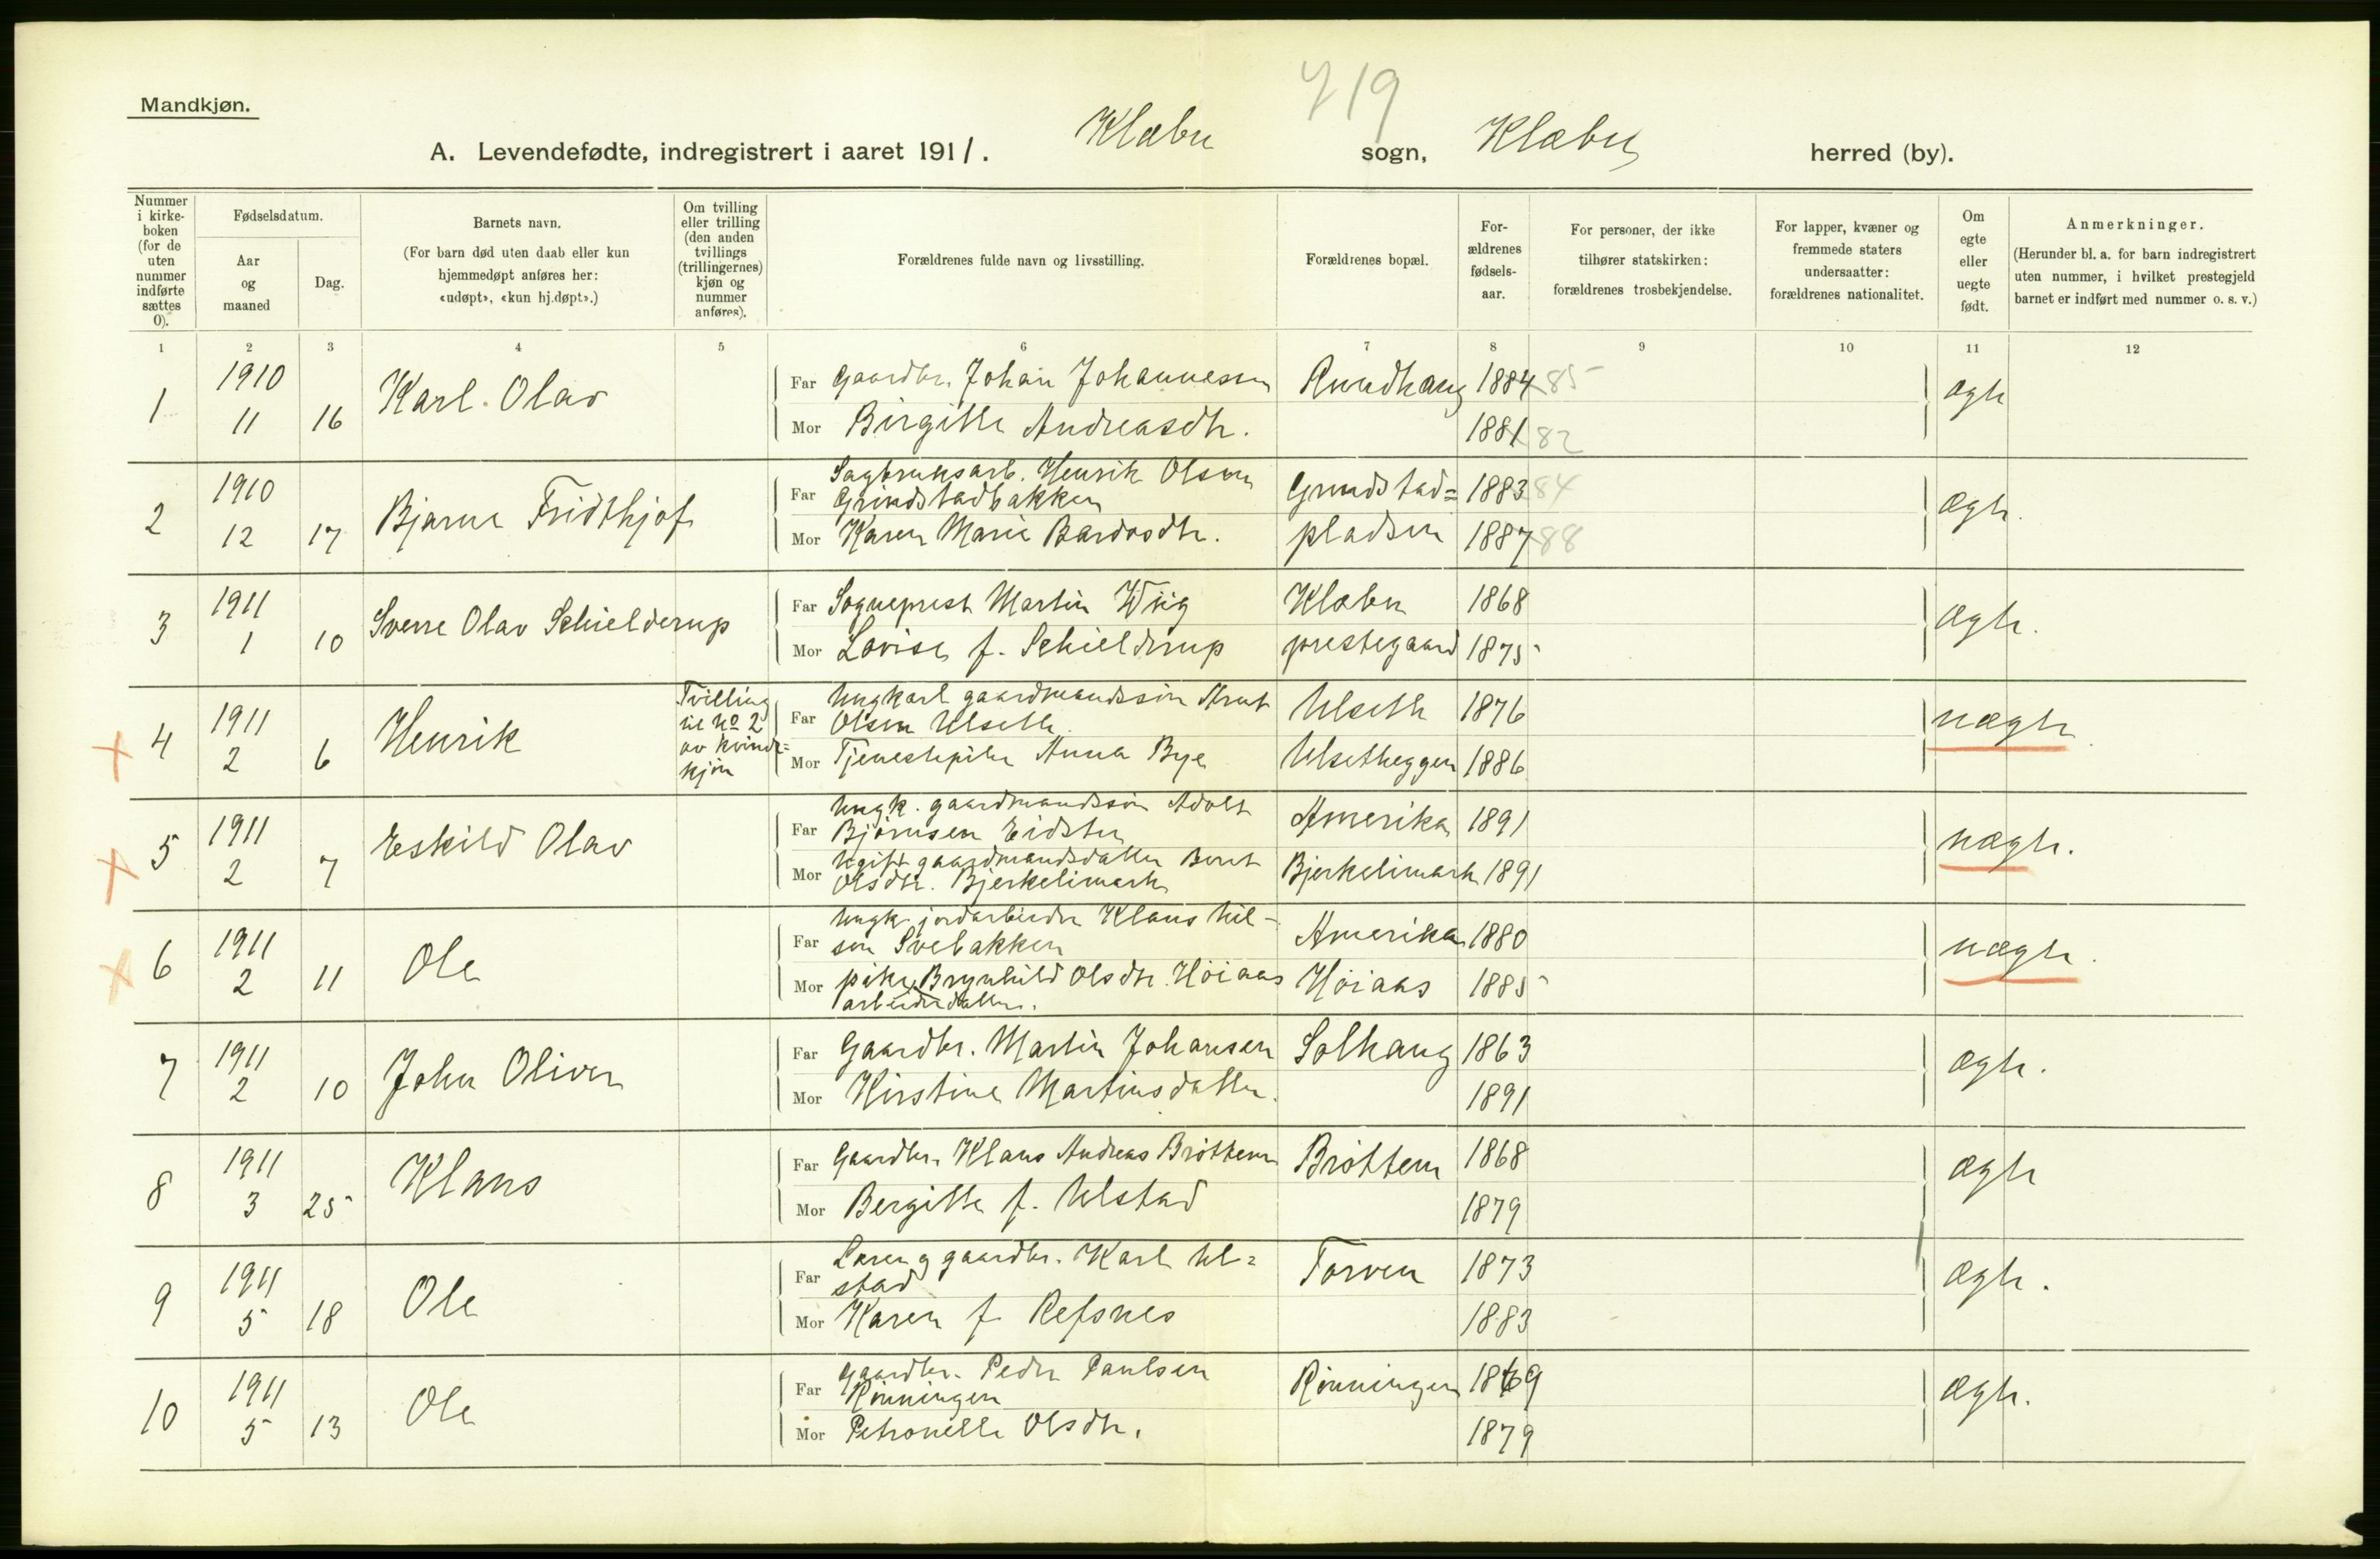 719
Mandkjøn.
A. Levendefødte, indregistrert i aaret 1911. Klæbu sogn, Klæbu herred (by).
Nummer i kirke-boken (for de uten nummer indførte sættes 0).
Fødselsdatum.
Aar og maaned
Dag.
Barnets navn.
(For barn død uten daab eller kun hjemmedøpt anføres her: «udøpt», «kun hj.døpt».)
Om tvilling eller trilling (den anden tvillings (trillingernes) kjøn og nummer anføres).
Forældrenes fulde navn og livsstilling.
Forældrenes bopæl.
For-ældrenes fødsels-aar.
For personer, der ikke tilhører statskirken: forældrenes trosbekjendelse.
For lapper, kvæner og fremmede staters undersaatter: forældrenes nationalitet.
Om egte eller uegte født.
Anmerkninger.
(Herunder bl. a. for barn indregistrert uten nummer, i hvilket prestegjeld barnet er indført med nummer o. s. v.)
1 2 3 4 5 6 7 8 9 10 11 12
1 1910 11 16 Karl Olav
Far Gaardbr. Johan Johannesen 1884 85 ægte
Mor Birgitte Andreasdtr. 1881 82
2 1910 12 17 Bjarne Fridthjof
Far Sagbruksarb. Henrik Olsen Grindstadbakken Grindstad= 1883 84 Ægte.
Mor Karen Marie Bardosdtr. pladsen 1887 88
3 1911 1 10 Sverre Olav Schielderup
Far Sogneprest Martin Wiig Klæbu 1868 Ægte.
Mor Lovise f. Schielderup prestegaard 1875
4 1911 2 6 Henrik Tvilling til No 2 av kvinde=kjøn
Far Ungkarl gaardmandssøn Arnt Olsen Ulseth Ulseth 1876 uægte.
Mor Tjenestepike Anna Bye Ulsetheggen 1886
5 1911 2 7 Eskild Olav
Far Ungk. gaardmandssøn Adolf Bjørnsen Eidstu Amerika 1891 uægte.
Mor Ugift gaardmandsdatter Beret Olsdtr. Bjerkelimark Bjerkelimark 1891
6 1911 2 11 Ole
Far Ungk. jordarbeider Klaus Nil-sen Svebakken Amerika 1880 uægte.
Mor pike, Brynhild Olsdtr. Höiaas arbeiderdatter. Höiaas 1885
7 1911 2 10 John Oliver
Far Gaardbr. Martin Johansen Solhaug 1863 Ægte.
Mor Kirstine Martinsdatter. 1891
8 1911 3 25 Klaus
Far Gaardbr. Klaus Andreas Bröttem Bröttem 1868 Ægte
Mor Bergitte f. Ulstad 1879
9 1911 5 18 Ole
Far gaardbr. Karl Ul=stad Torven 1873 Ægte.
Mor Karen f. Refsnes 1883
10 1911 5 13 Ole
Far Gaardbr. Peder Paulsen Rönningen Rönningen 1869 Ægte.
Mor Petronelle Olsdtr. 1879